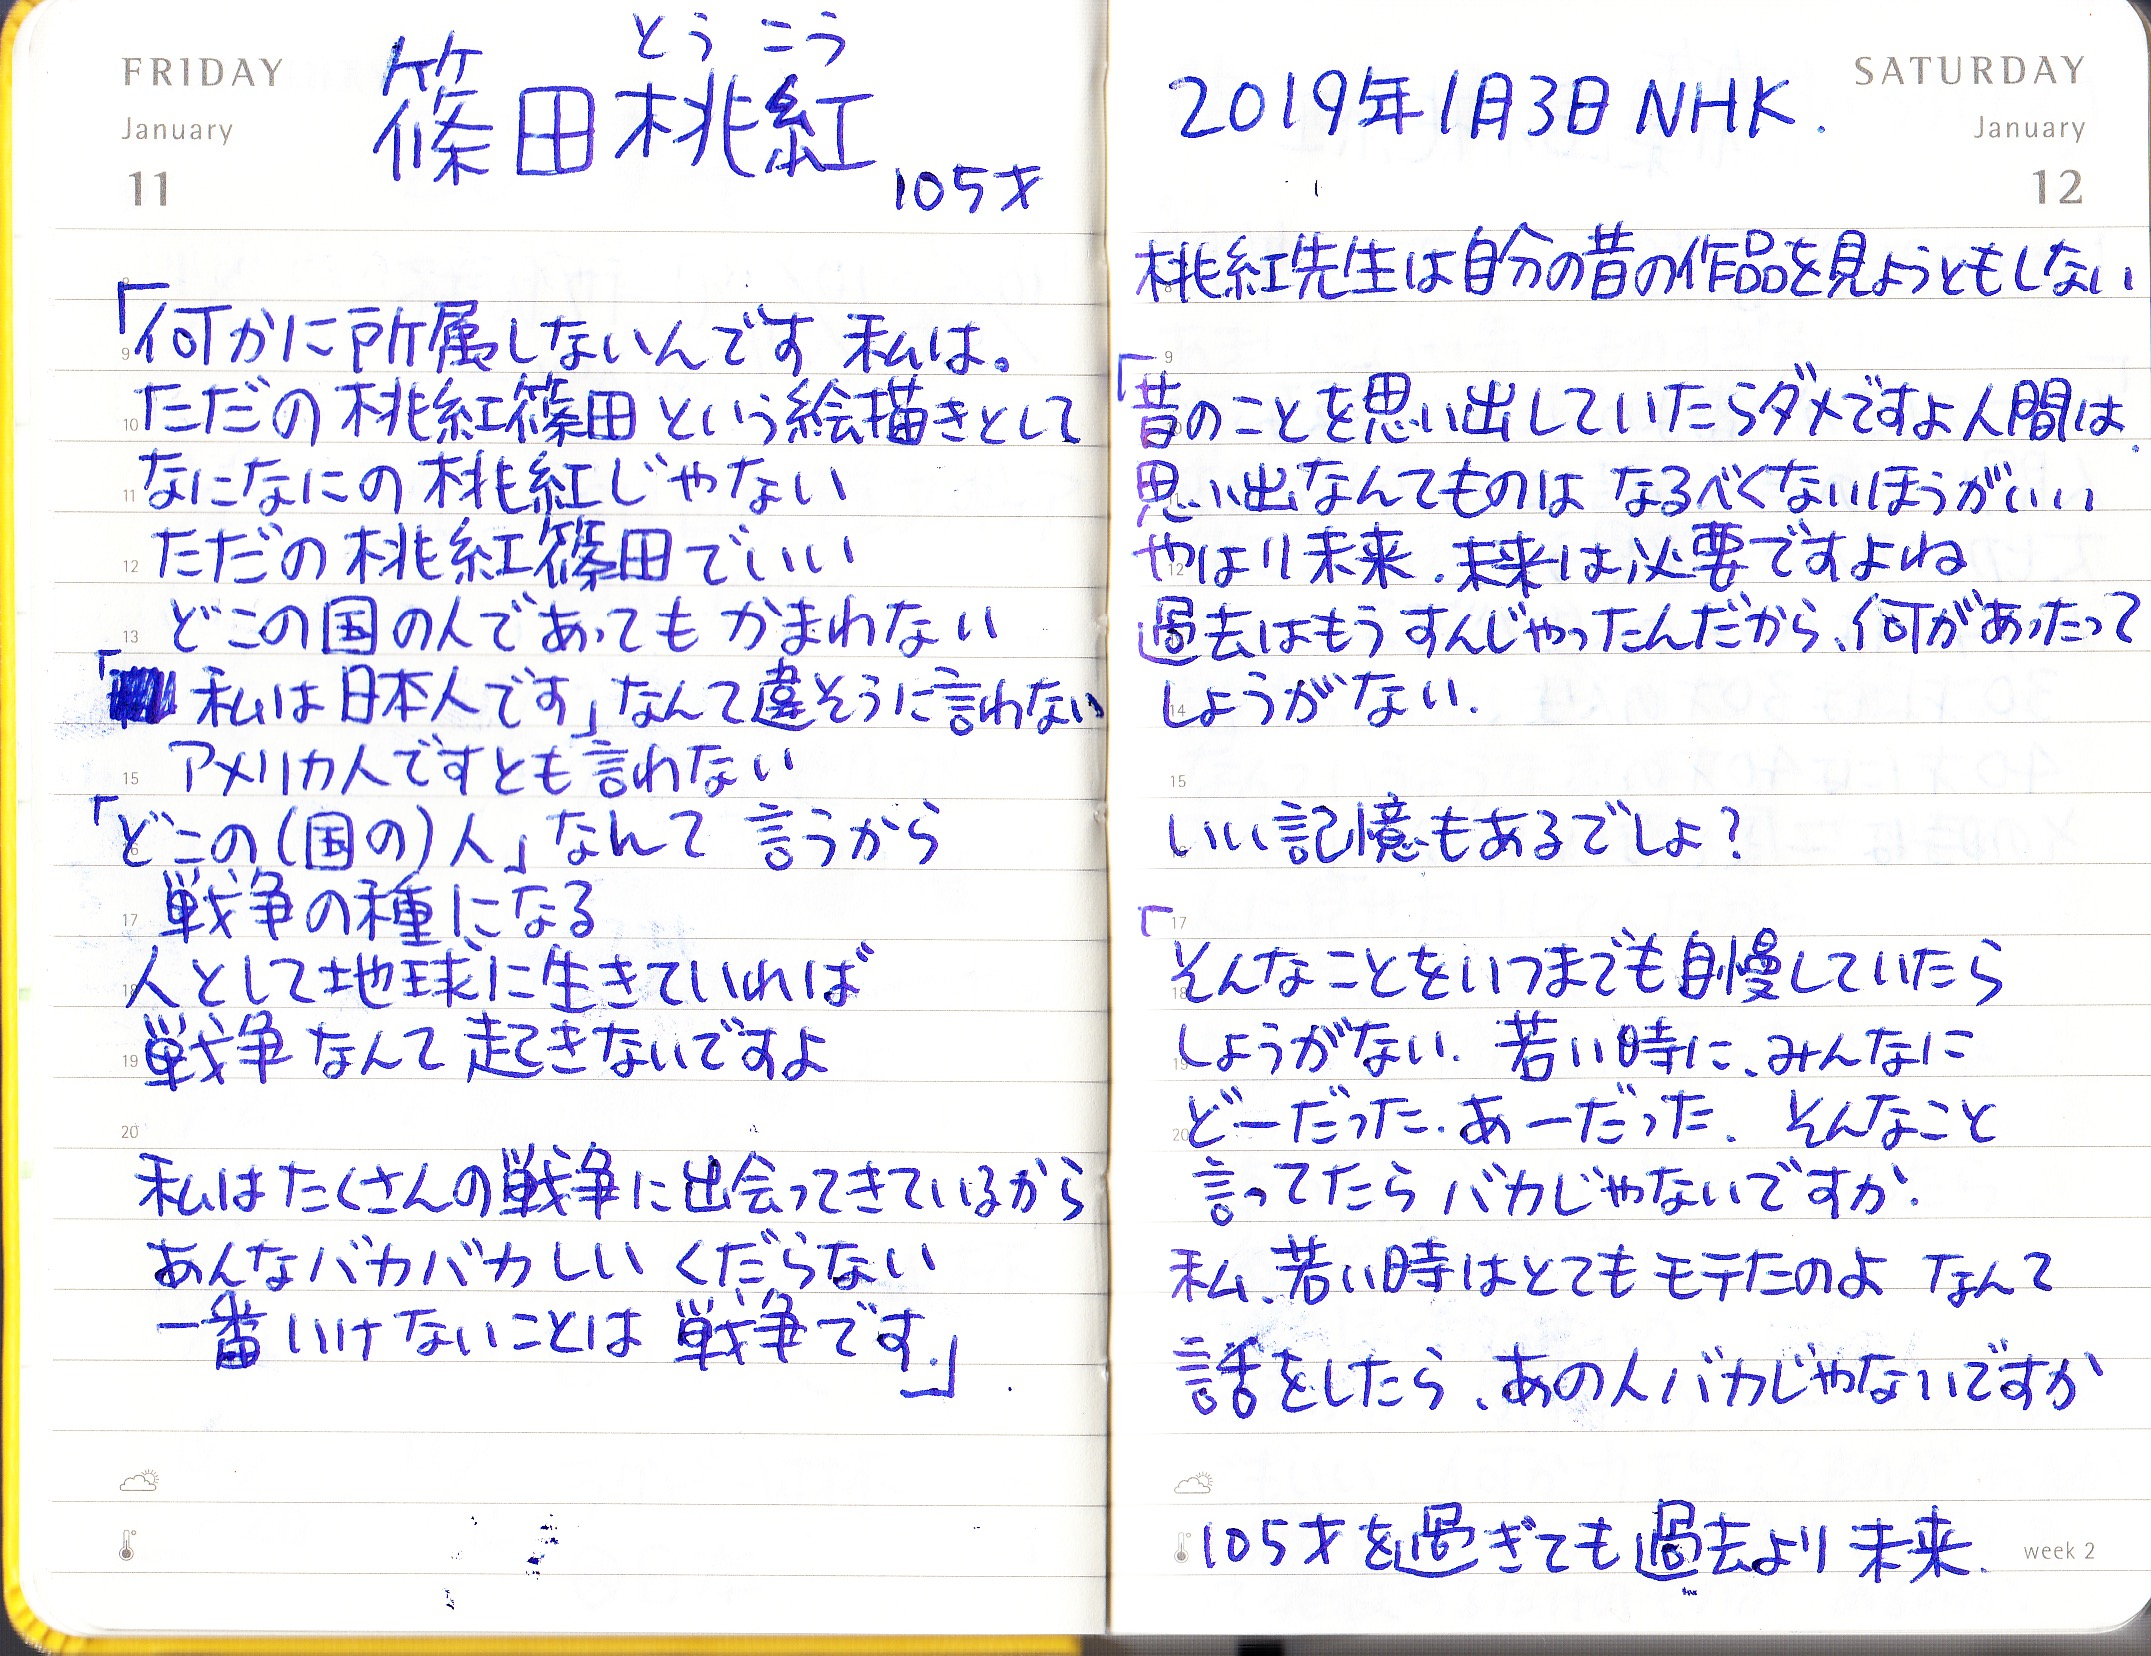 FRIDAY
January
11
とうこう
篠田桃紅
105才
「何かに所属しないんです 私は。
9
ただの桃紅篠田という絵描きとして
10
なになにの桃紅じゃない
11
ただの桃紅篠田でいい
12
どこの国の人であってもかまわない
13
「私は日本人です」なんて違そうに言わない
アメリカ人ですとも言わない
15
「どこの(国の)人」なんて 言うから
戦争の種になる
17
人として地球に生きていれば
18
戦争なんて起きないですよ
19
20
私はたくさんの戦争に出会ってきているから
あんなバカバカしい くだらない
一番いけないことは 戦争です。」
SATURDAY
January
12
2019年1月3日 NHK.
桃紅先生は自分の昔の作品を見ようともしない
8
9
「昔のことを思い出していたらダメですよ人間は.
思い出なんてものは なるべくないほうがいい
やはり未来. 未来は必要ですよね
12
過去はもうすんじゃったんだから、何があったって
しょうがない.
14
15
いい記憶もあるでしょ?
「
17
そんなことをいつまでも自慢していたら
18
しょうがない. 若い時に、みんなに
19
どーだった. あーだった. そんなこと
20
言ってたらバカじゃないですか.
私、若い時はとてもモテたのよ なんて
話をしたら、あの人バカじゃないですか
105才を過ぎても過去より未来.
week 2